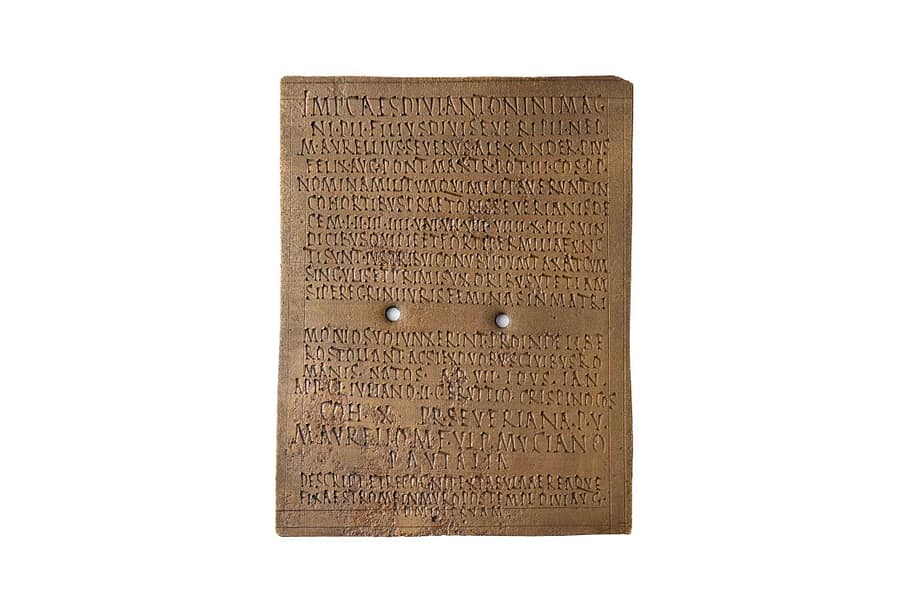 IMP CAES DIVI ANTONINI MAG
NI PII FILIVS DIVI SEVERI PII NEP
M AVRELLIVS SEVERVS ALEXANDER PIVS
FELIX AVG PONT MAX TR POT IIII COS P P
NOMINA MILITVM QVI MILITAVERVNT IN
COHORTIBVS PRAETORIS SEVERIANIS DE
CEM I II III IIII V VI VII VIII VIIII X PIIS VIN
DICIBVS QVI PIE ET FORTITER MILITIA FVNC
TI SVNT IVS TRIBVI CONVBII DVMTAXAT CVM
SINGVLIS ET PRIMIS VXORIBVS VT ETIAM
SI PEREGRINI IVRIS FEMINAS IN MATRI
MONIO SVO IVNXERINT PROINDE LIBE
ROS TOLLANT AC SI EX DVOBVS CIVIBVS RO
MANIS NATOS A D VII IDVS IAN
APP CL IVLIANO II C BRVTTIO CRISPINO COS
COH X PR SEVERIANA P V
M AVRELIO M F VLP MVCIANO
PAVTALIA
DESCRIPT ET RECOGNIT EX TABVLA AEREA QVE
FIXA EST ROME IN MVRO POS TEMPL DIVI AVG